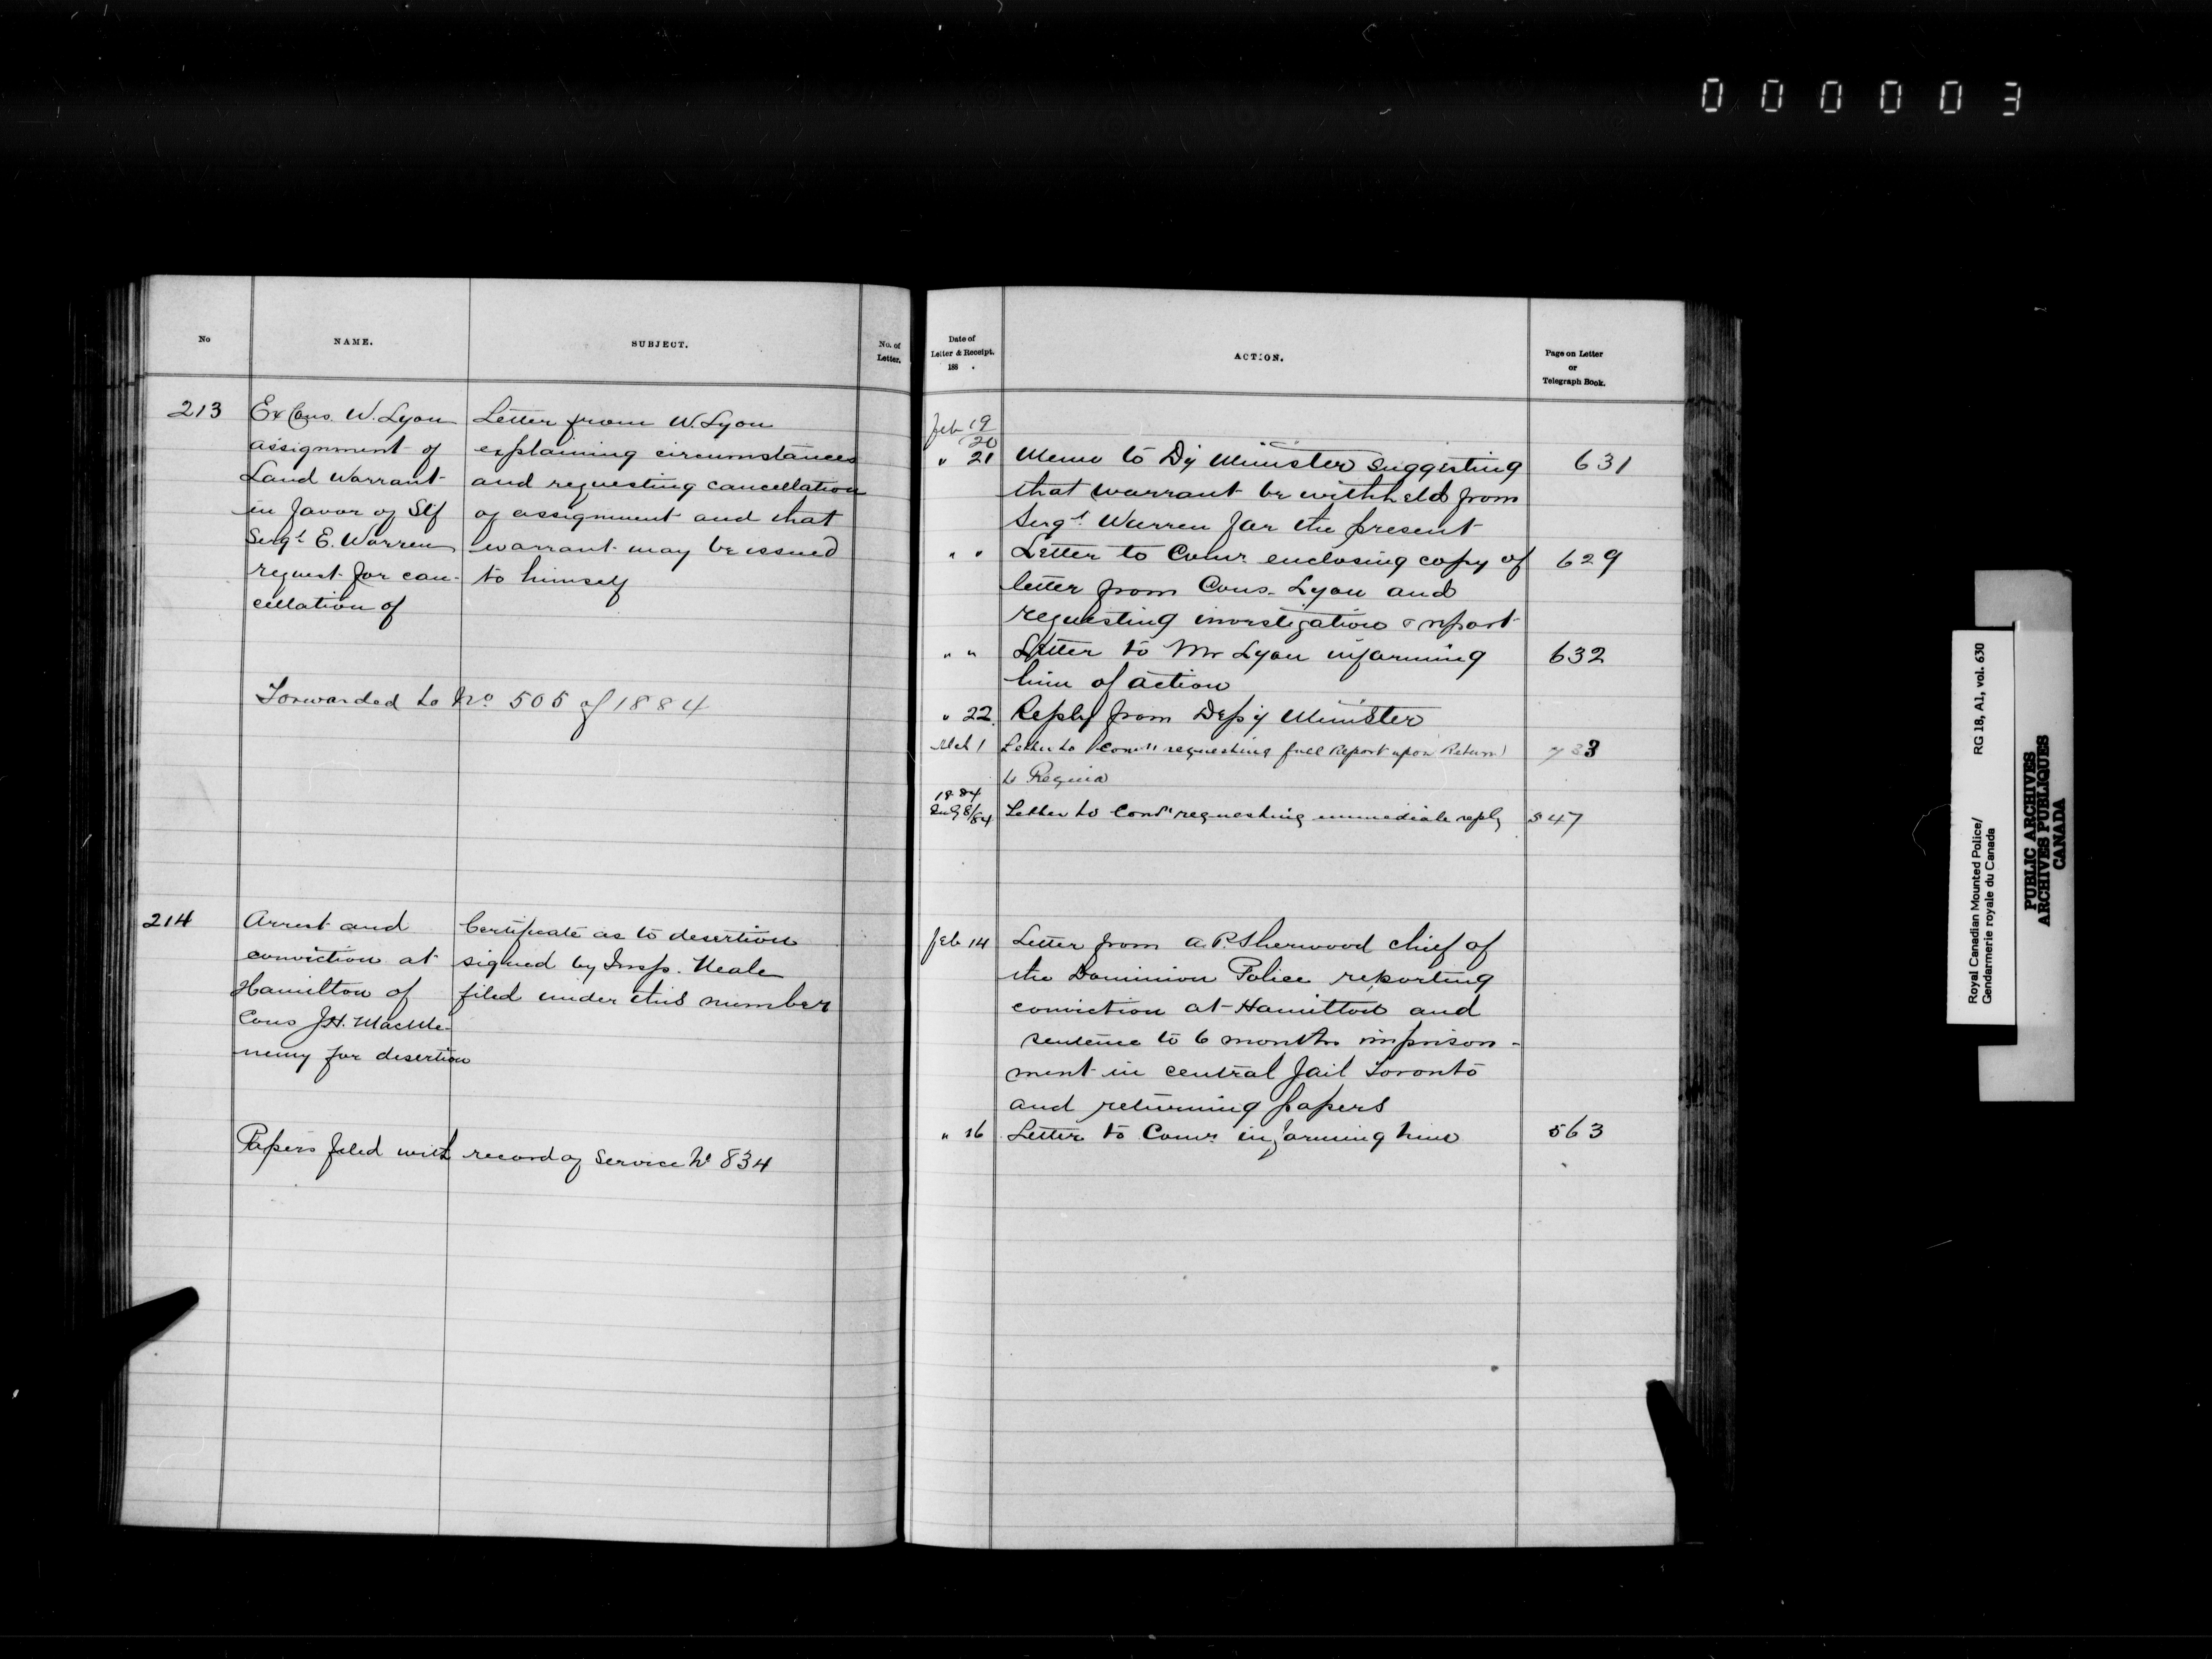 000003
No
NAME.
SUBJECT.
No. of
Letter.
213
Ex Cons. W. Lyon
assignment of
Land Warrant
in favor of Stf
Sergt E. Warren
request for can-
cellation of
Letter from W. Lyon
explaining circumstances
and requesting cancellation
of assignment and that
warrant may be issued
to himself
Forwarded to No 505 of 1884
214
Arrest and
conviction at
Hamilton of
Cons J.H.
for desertion
Certificate as to desertion
signed by Insp. Neale
filed under this number
Papers filed with record of Service No 834
Date of
Letter & Receipt.
188 .
ACTION.
Page on Letter
or
Telegraph Book.
Feb 19/20
" 21 Memo to Dy Minister suggesting 631
that warrant be withheld from
Sergt Warren for the present
" " Letter to Comr enclosing copy of 629
letter from Cons. Lyon and
requesting investigation & report
" " Letter to Mr Lyon informing 632
him of action
" 22. Reply from Depy Minister
Mch 1 Letter to Comr requesting full Report upon Return 733
to Regina
1884
8/84 Letter to Comr requesting immediate reply 547
Feb 14 Letter from A.P. Sherwood chief of
the Dominion Police reporting
conviction at Hamilton and
sentence to 6 months imprison-
ment in central Jail Toronto
and returning papers
" 16 Letter to Comr informing him 563
Royal Canadian Mounted Police/
Gendarmerie royale du Canada
RG 18, A1, vol. 630
PUBLIC ARCHIVES
ARCHIVES PUBLIQUES
CANADA